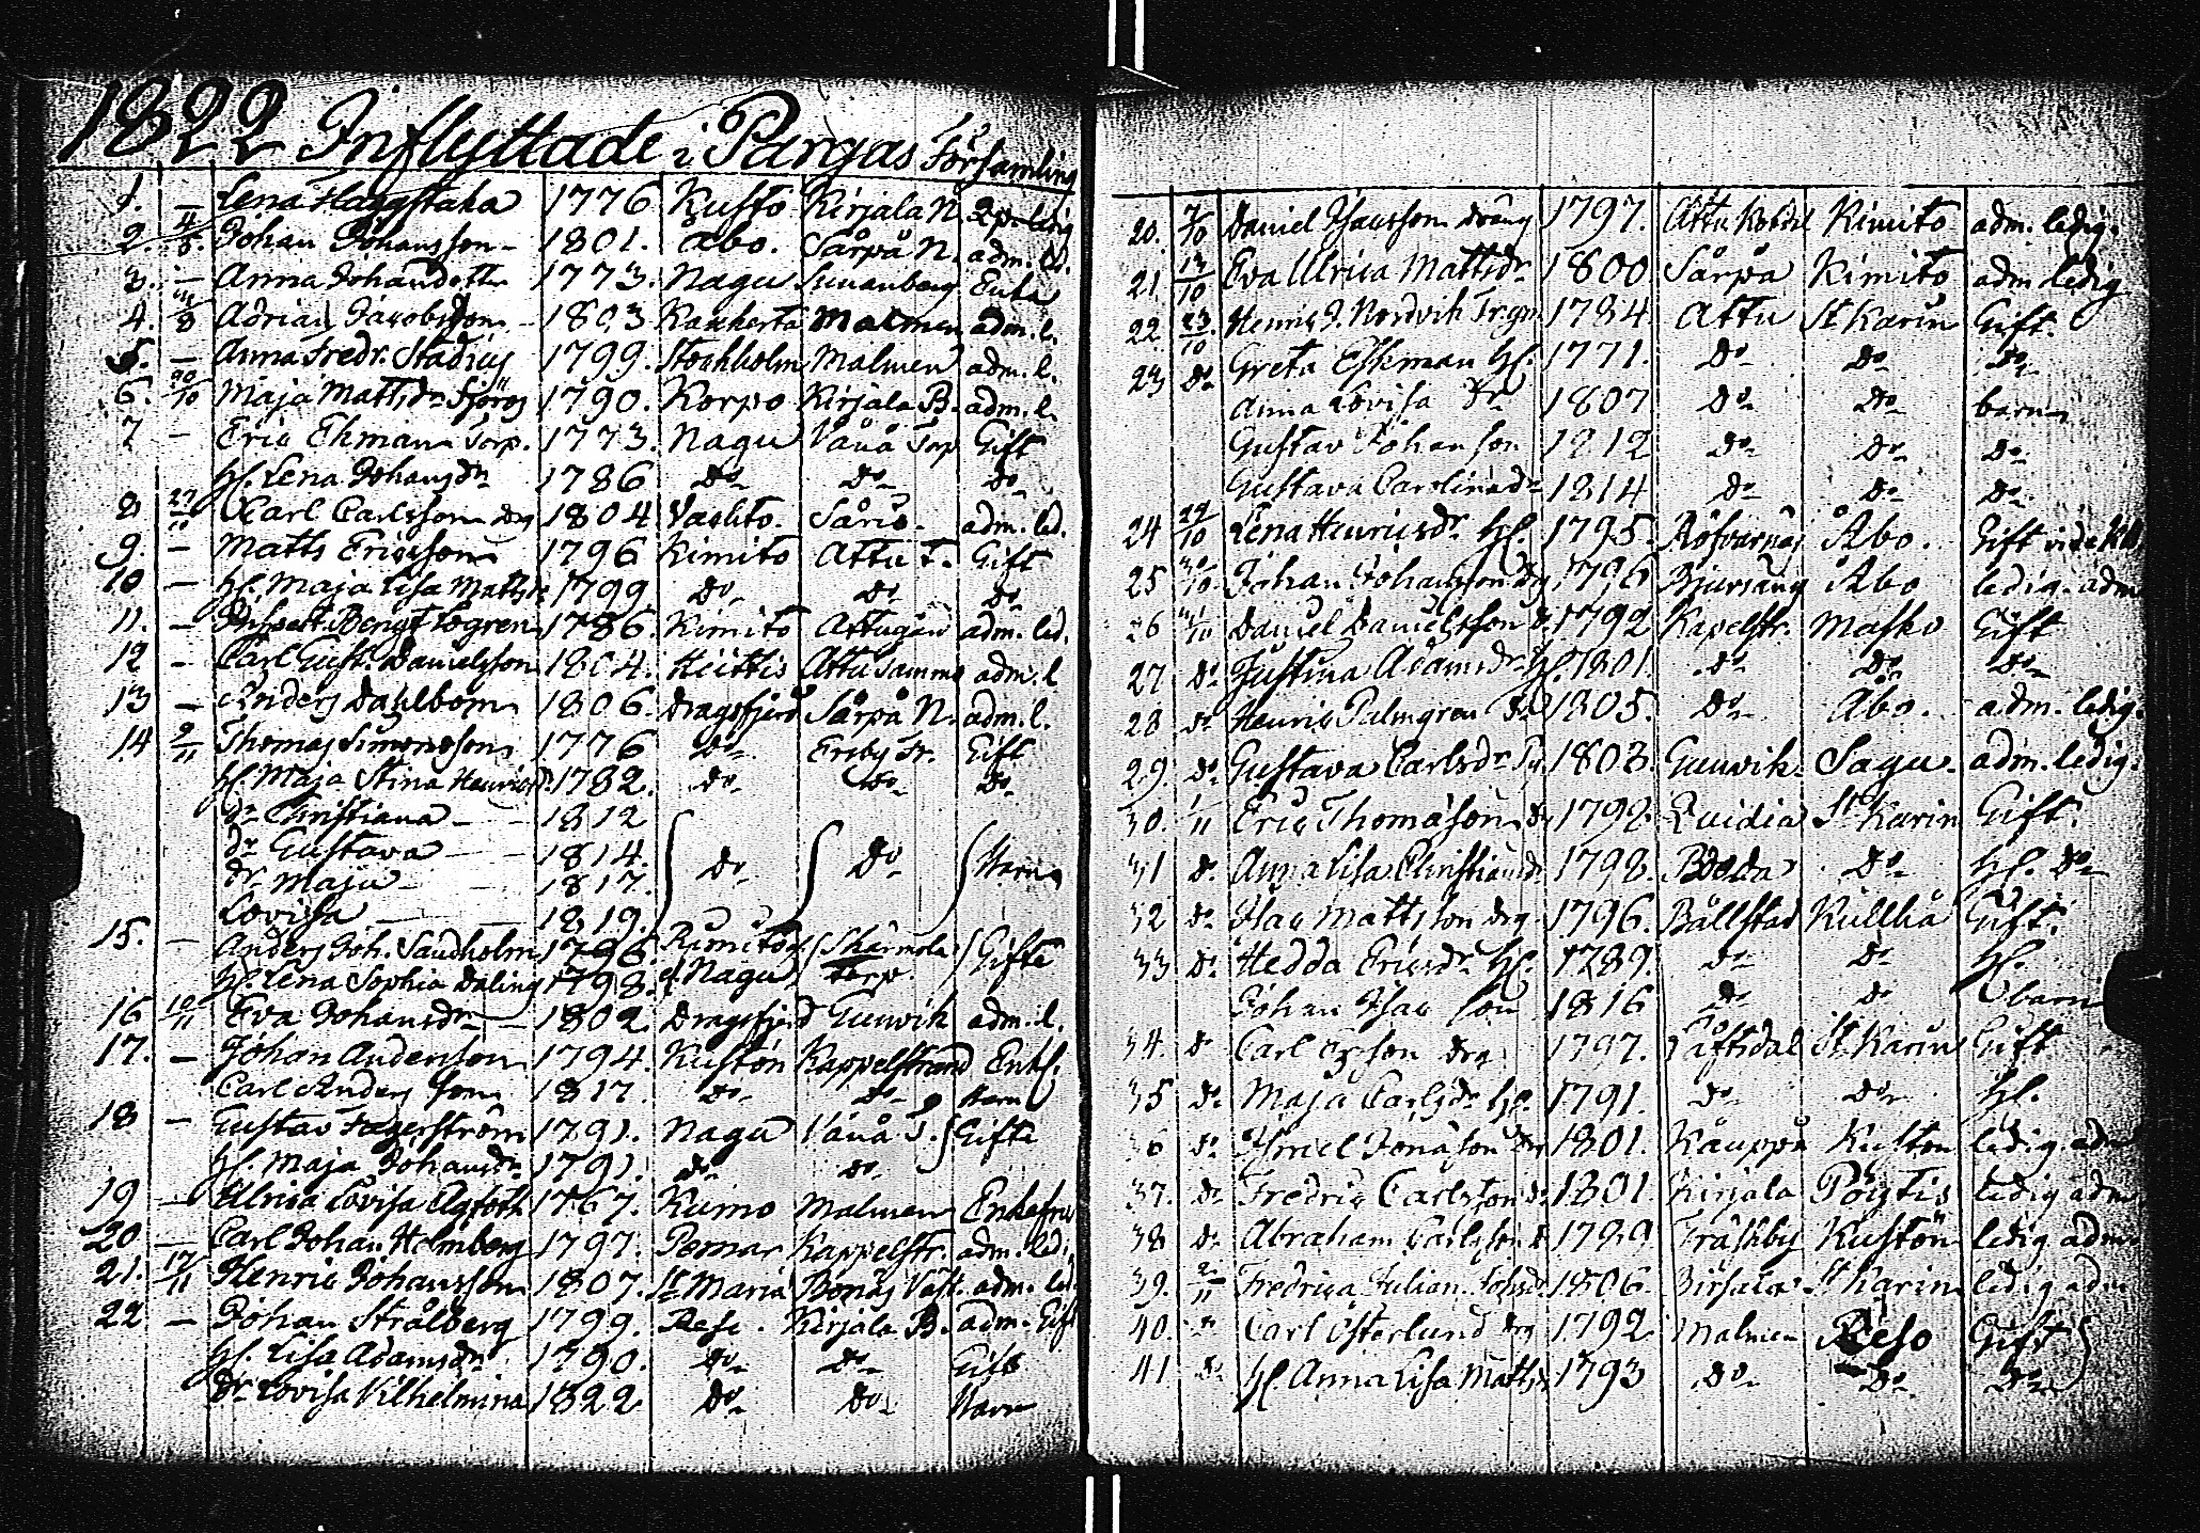 1822 Inflyttade i Pargas Församling
1. — Lena Haggstaha 1776 Kusto Kirjala N. ledig
2. 4/8. Johan Johansson — 1801. Åbo. Sårpå N. adm. led.
3. — Anna Johansdottr 1773. Nagu Enka
4. Adrian Jacobsson — 1803 Kakskerta Malmen adm. l.
5. — Anna Fredr. Stadius 1799. Stockholm Malmen adm. l.
6. 20/10 Maja Mattsdr Sjöros 1790. Korpo Kirjala B. adm. l.
7 — Eric Ekman Torp. 1773. Nagu Vånå Torp Gift
H. Lena Johansdr 1786 do do do
8 27/10 Carl Carlsson drg 1804 Såris. adm. led.
9. — Matts Ericsson 1796 Kimito Attu T. Gift
10 — H. Maja Lisa Mattsdr 1799 do do do
11. — Bengt Flogren 1786. Kimito Attugån adm. led.
12 — Carl Gust. Danielsson 1804. Hiittis Attu Sammo adm. l.
13 — Anders Dahlbom 1806. Dragsfjerd Sårpå N. adm. l.
14 9/11 Thomas Simonsson 1776 do Ersby Tr. Gift
H. Maja Stina Henricsdr 1782. do do do
dr Christiana — 1812
dr Gustava — 1814.
dr Maja — 1817. do do Barn
Lovisa — 1819.
15. — Anders Joh. Sandholm 1796. Rimito Skärmola Gifte
H. Lena Sophia Daling 1798. Nagu Torp.
16 10/11 Eva Johansdr — 1802 Dragsfjerd Gunvik adm. l.
17. — Johan Andersson 1794. Kustön Kappelstrand Enkl.
Carl Anders Son 1817. do do Barn
18 — Gustav Fagerström 1791. Nagu Vånå T. Gifte
H. Maja Johansdr 1791. do do
19 — Ulrica Lovisa Agricola 1767. Kumo Malmen Enkefru
20 — Carl Johan Holmberg 1797. Pemar Kappelstr. adm. led.
21. 17/11 Henric Johansson 1807. St Maria Bonäs Väst. adm. led.
22 — Johan Strålberg 1799. Reso. Kirjala B. adm. Gift
H. Lisa Adamsdr 1790. do do Gift
dr Lovisa Vilhelmina 1822 do do Barn
20. 7/10 Daniel Isacsson dräng 1797. Attu Kimito adm. ledig.
21. 13/10 Eva Ulrica Mattsdr 1800 Sårpå Kimito adm ledig
22. 23/10 Henric J. Nordvik 1784. Attu St Karin Gift.
23 do Greta Eskman H. 1771. do do do
Anna Lovisa dr 1807 do do barn
Gustav Johansson 1812 do do do
Gustava Carolina dr 1814 do do do
24 29/10 Lena Henricsdr H. 1795. Röfvarnäs Åbo. Gift
25 30/10 Johan Johansson drg 1796 Bjursäng Åbo ledig. adm
26 31/10 Daniel Danielsson d. 1792 Kapelstr. Masko Gift
27 do Justina Adamsdr H. 1801. do do do
28 do Henric Palmgren 1805. do Åbo. adm. ledig.
29. do Gustava Carlsdr P. 1803. Gunvik. Sagu. adm. ledig.
30. 1/11 Eric Thomasson d. 1792. Qvidia St Karin Gift.
31 do Anna Lisa Christiansdr 1798. do H. do
32 do Isac Mattsson drg 1796. Bällstad Kullkå Gift.
33 do Hedda Ericsdr H. 1789. do do H.
Johan Isacson 1816 do do barn
34. do Carl drg 1797. Löftsdal St Karin Gift
35 do Maja Carlsdr H. 1791. do do H.
36 do Israel Jonasson drg 1801. Kåuppå Kustön ledig. adm
37. do Fredric Carlsson d. 1801. Kirjala Pöytis ledig adm
38 do Abraham Carlsson d. 1799. Fräskby Kustön ledig adm
39. 2/11 Fredrica Julian. Johsdr. 1806. Birsala St Karin ledig adm
40. do Carl Österlund drg 1792 Malmen Reso Gift
41. do H. Anna Lisa Mattsdr 1793 do do do